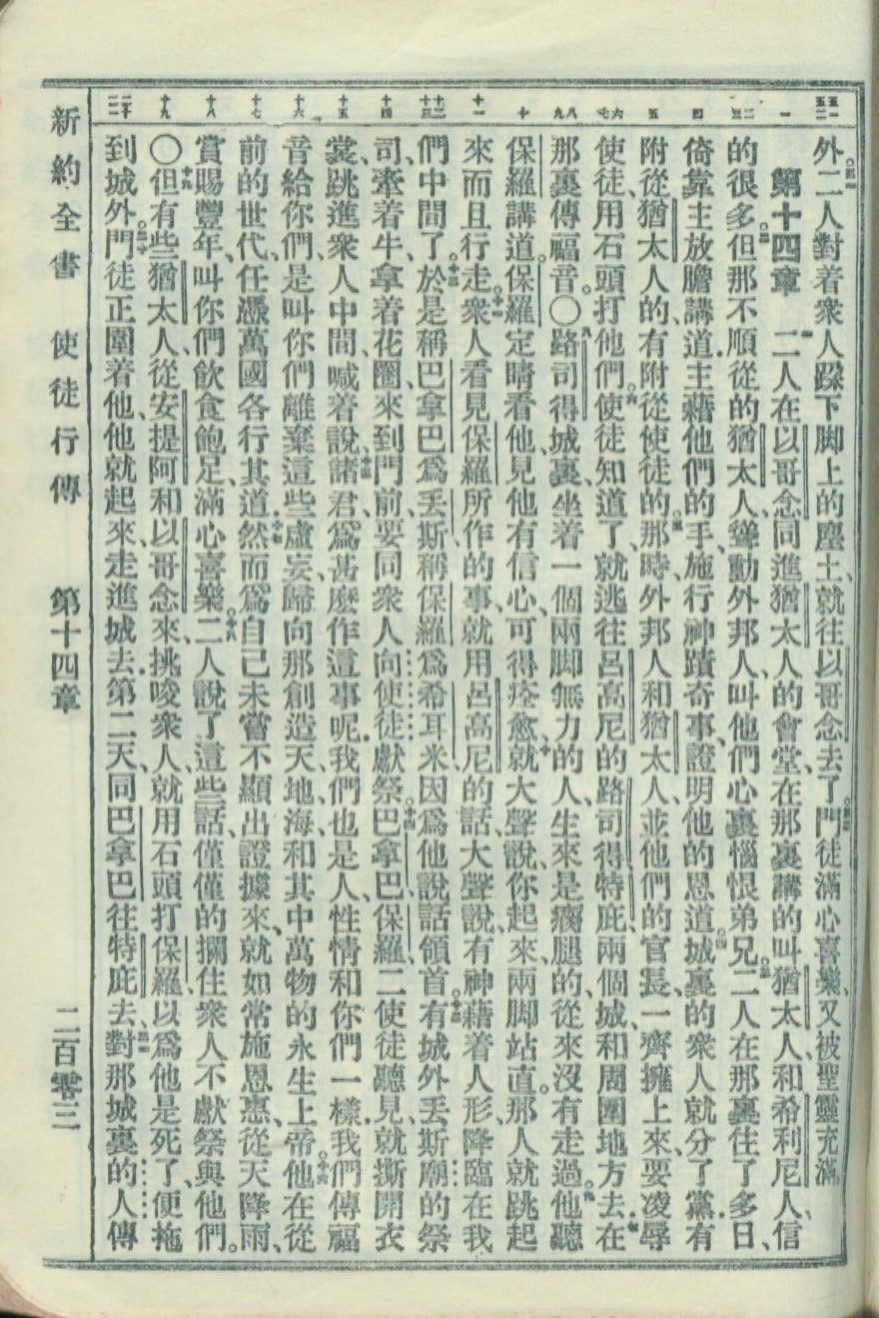 五一 五二 一 二 三 四 五 六 七 八 九 十 十一 十二 十三 十四 十五 十六 十七 十八 十九 二十 二一
外二人對着衆人跺下脚上的塵土、就往以哥念去了門徒滿心喜樂、又被聖靈充滿。
第十四章　二人在以哥念同進猶太人的會堂、在那裏講的、叫猶太人和希利尼人、信
的很多但那不順從的猶太人、聳動外邦人、叫他們心裏惱恨弟兄。二人在那裏住了多日、
倚靠主放膽講道、主藉他們的手、施行神蹟奇事、證明他的恩道。城裏的衆人就分了黨、有
附從猶太人的、有附從使徒的。那時、外邦人和猶太人、並他們的官長、一齊擁上來、要凌辱
使徒、用石頭打他們。使徒知道了、就逃往呂高尼的路司得、特庇、兩個城、和周圍地方去、在
那裏傳福音。〇路司得城裏、坐着一個兩脚無力的人、生來是瘸腿的、從來沒有走過。他聽
保羅講道。保羅定睛看他、見他有信心、可得痊愈、就大聲說、你起來、兩脚站直。那人就跳起
來而且行走。衆人看見保羅所作的事、就用呂高尼的話、大聲說、有神藉着人形、降臨在我
們中間了。於是稱巴拿巴爲丟斯、稱保羅爲希耳米、因爲他說話領首。有城外丟斯廟的祭
司、牽着牛、拿着花圈、來到門前、要同衆人向使徒獻祭。巴拿巴、保羅、二使徒聽見、就撕開衣
裳、跳進衆人中間、喊着說、諸君、爲甚麼作這事呢、我們也是人、性情和你們一樣、我們傳福
音給你們、是叫你們離棄這些虛妄、歸向那創造天地海、和其中萬物的永生上帝。他在從
前的世代、任憑萬國各行其道、然而爲自己未嘗不顯出證據來、就如常施恩惠、從天降雨、
賞賜豐年、叫你們飲食飽足、滿心喜樂。二人說了這些話、僅僅的攔住衆人不獻祭與他們。
〇但有些猶太人、從安提阿和以哥念來、挑唆衆人、就用石頭打保羅、以爲他是死了、便拖
到城外。門徒正圍着他、他就起來、走進城去、第二天、同巴拿巴往特庇去、對那城裏的人傳
新約全書　使徒行傳　第十四章　二百零三